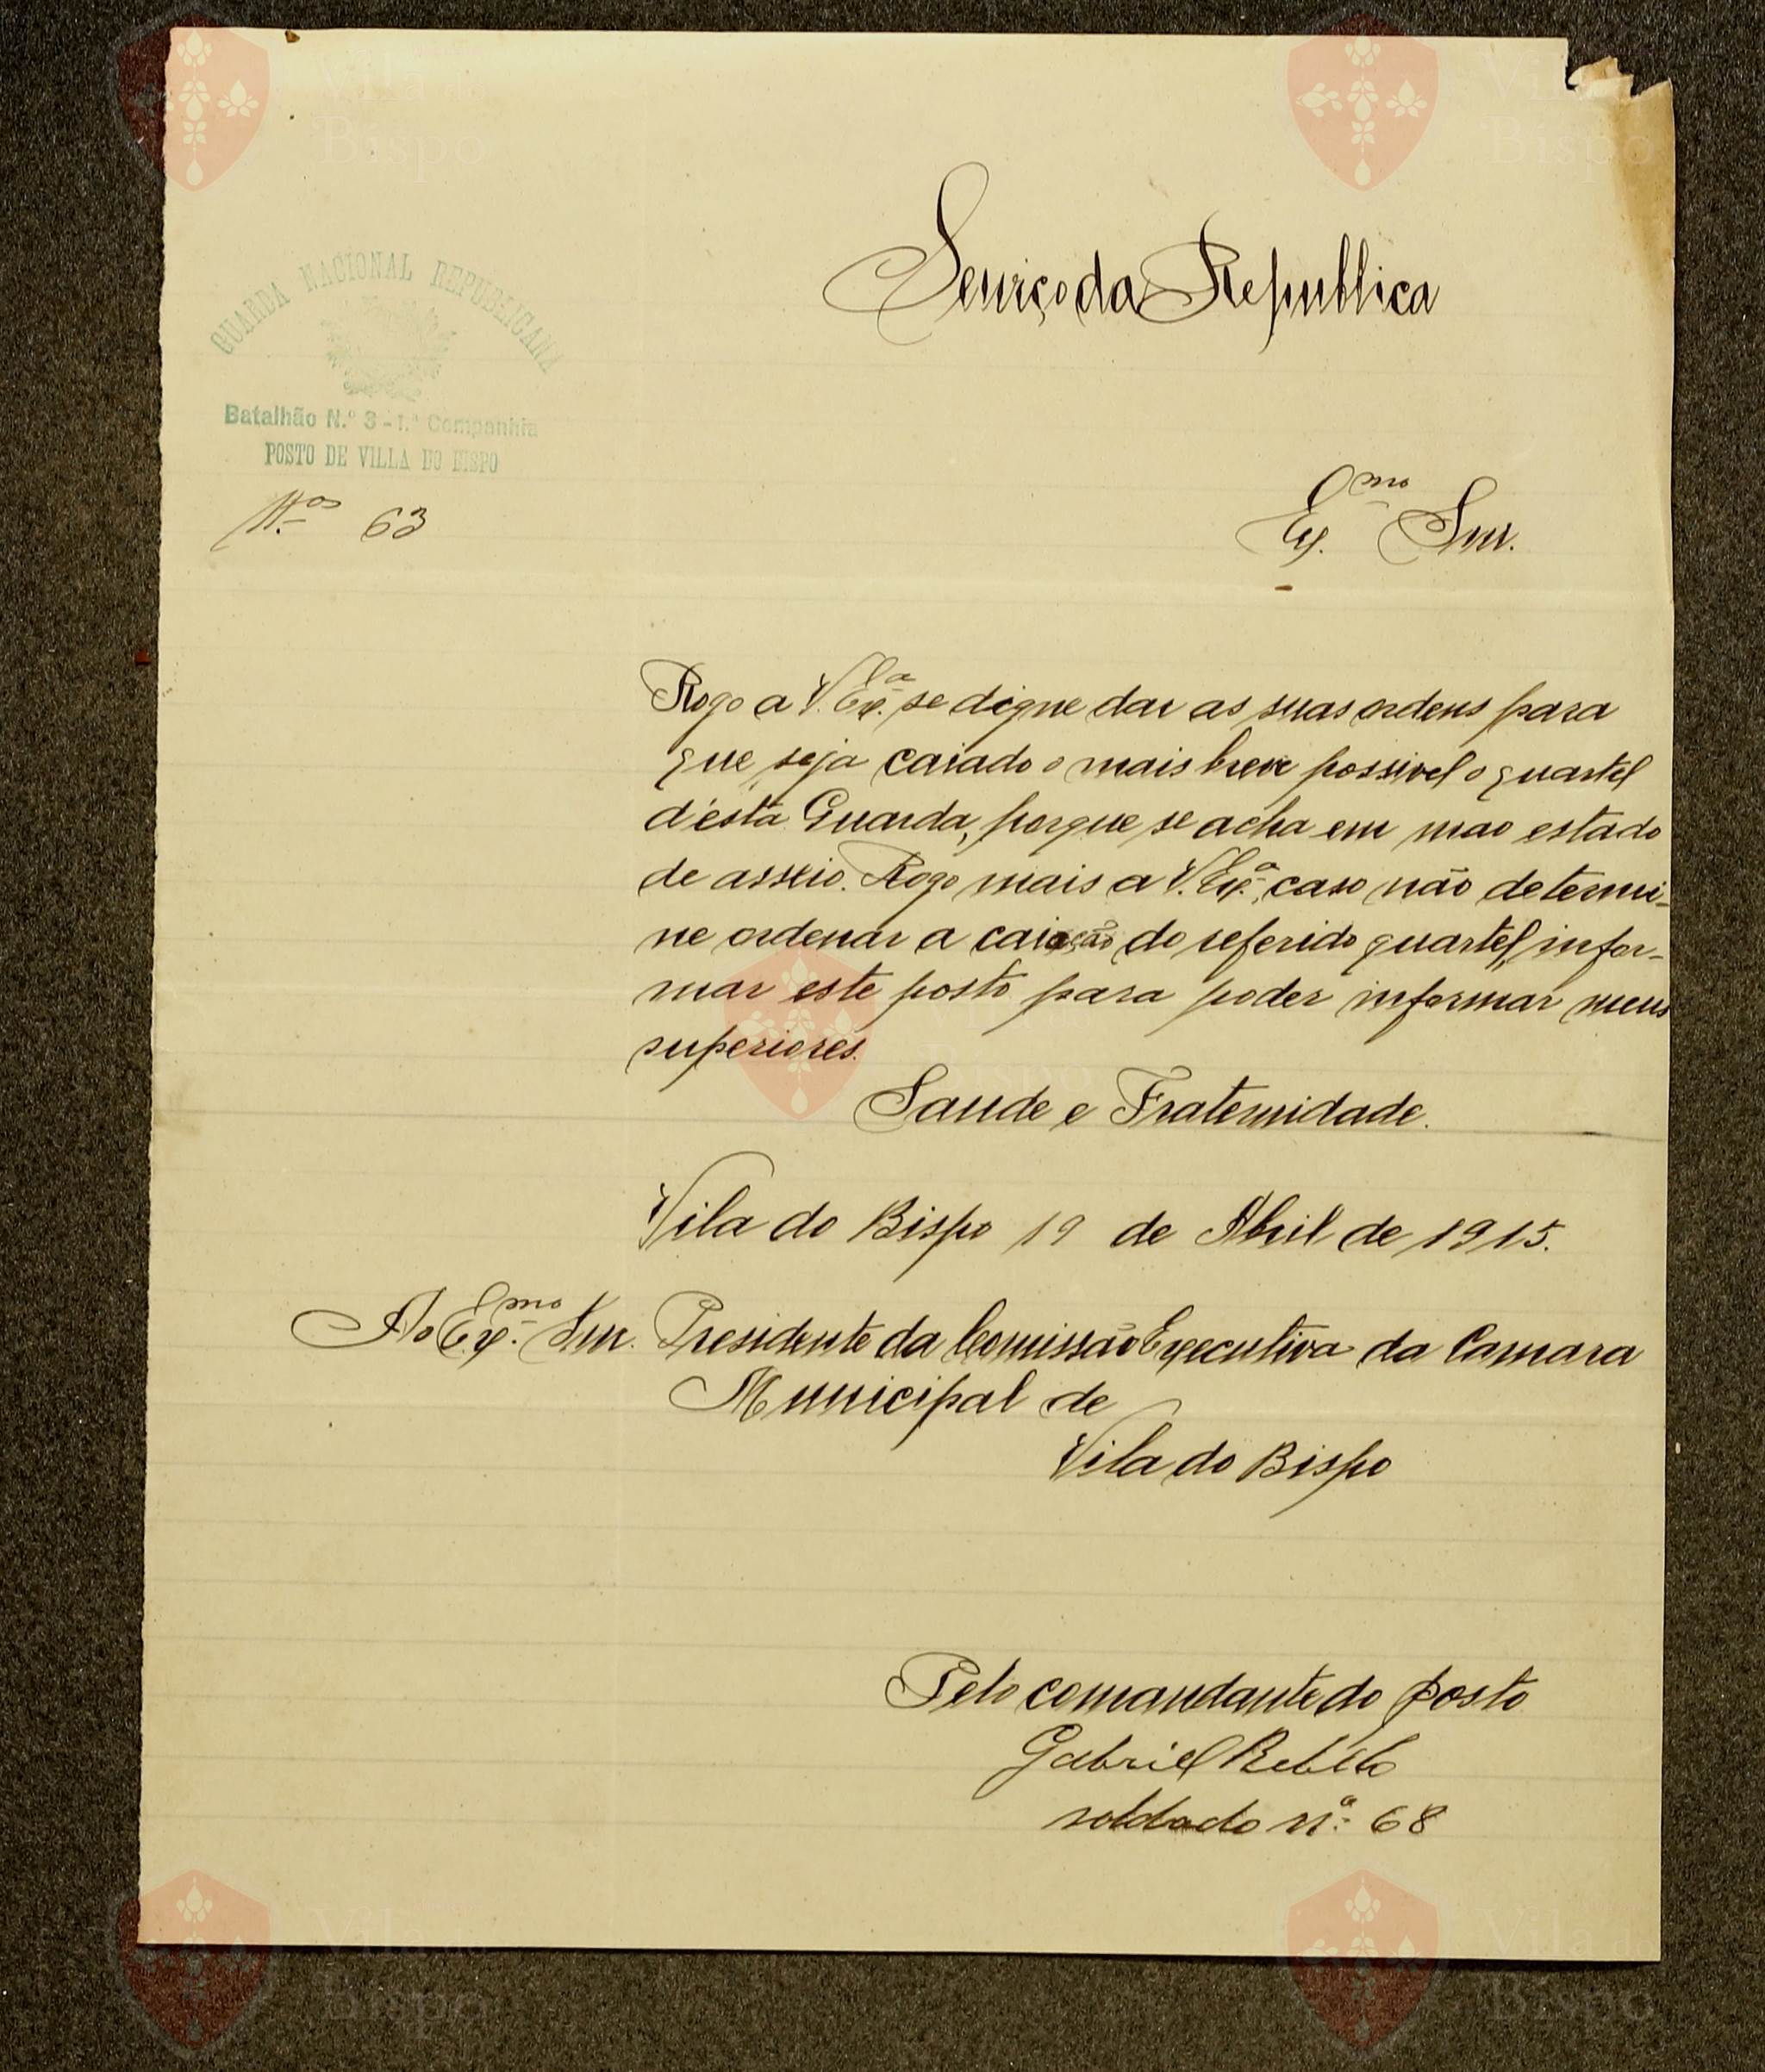 Serviço da Republica
GUARDA NACIONAL REPUBLICANA
Batalhão N.º 3 - 1.ª Companhia
POSTO DE VILLA DO BISPO
N.º 63
Ex.mo Snr.
Rogo a V. Ex.ª se digne dar as suas ordens para
que seja caiado o mais breve possivel o quartel
d'ésta Guarda, porque se acha em mao estado
de asseio. Rogo mais a V. Ex.ª, caso não determi-
ne ordenar a caiação do referido quartel, infor-
mar este posto para poder informar meus
superiores.
Saude e Fraternidade.
Vila do Bispo 19 de Abril de 1915.
Ao Ex.mo Snr. Presidente da Comissão Executiva da Camara
Municipal de
Vila do Bispo
Pelo comandante do posto
Gabriel Rebelo
soldado n.º 68
Vila do
Bispo
Vila do
Bispo
Vila do
Bispo
Vila do
Bispo
Vila do
Bispo